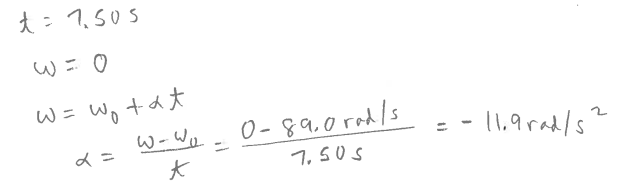 t = 7.50 s
ω = 0
ω = ω₀ + αt
α = (ω - ω₀)/t = (0 - 89.0 rad/s)/(7.50 s) = - 11.9 rad/s²